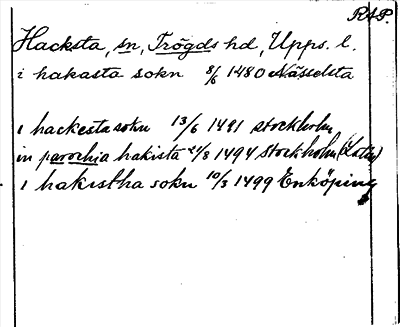 RAP.
Hacksta, sn, Trögds hd, Upps. l.
i hakasta sokn 8/6 1480 Nässelsta
i hackesta sokn 13/6 1491 stockholm
in parochia hakista 21/8 1494 Stockholm (Latin)
i hakistha sokn 10/3 1499 Enköping